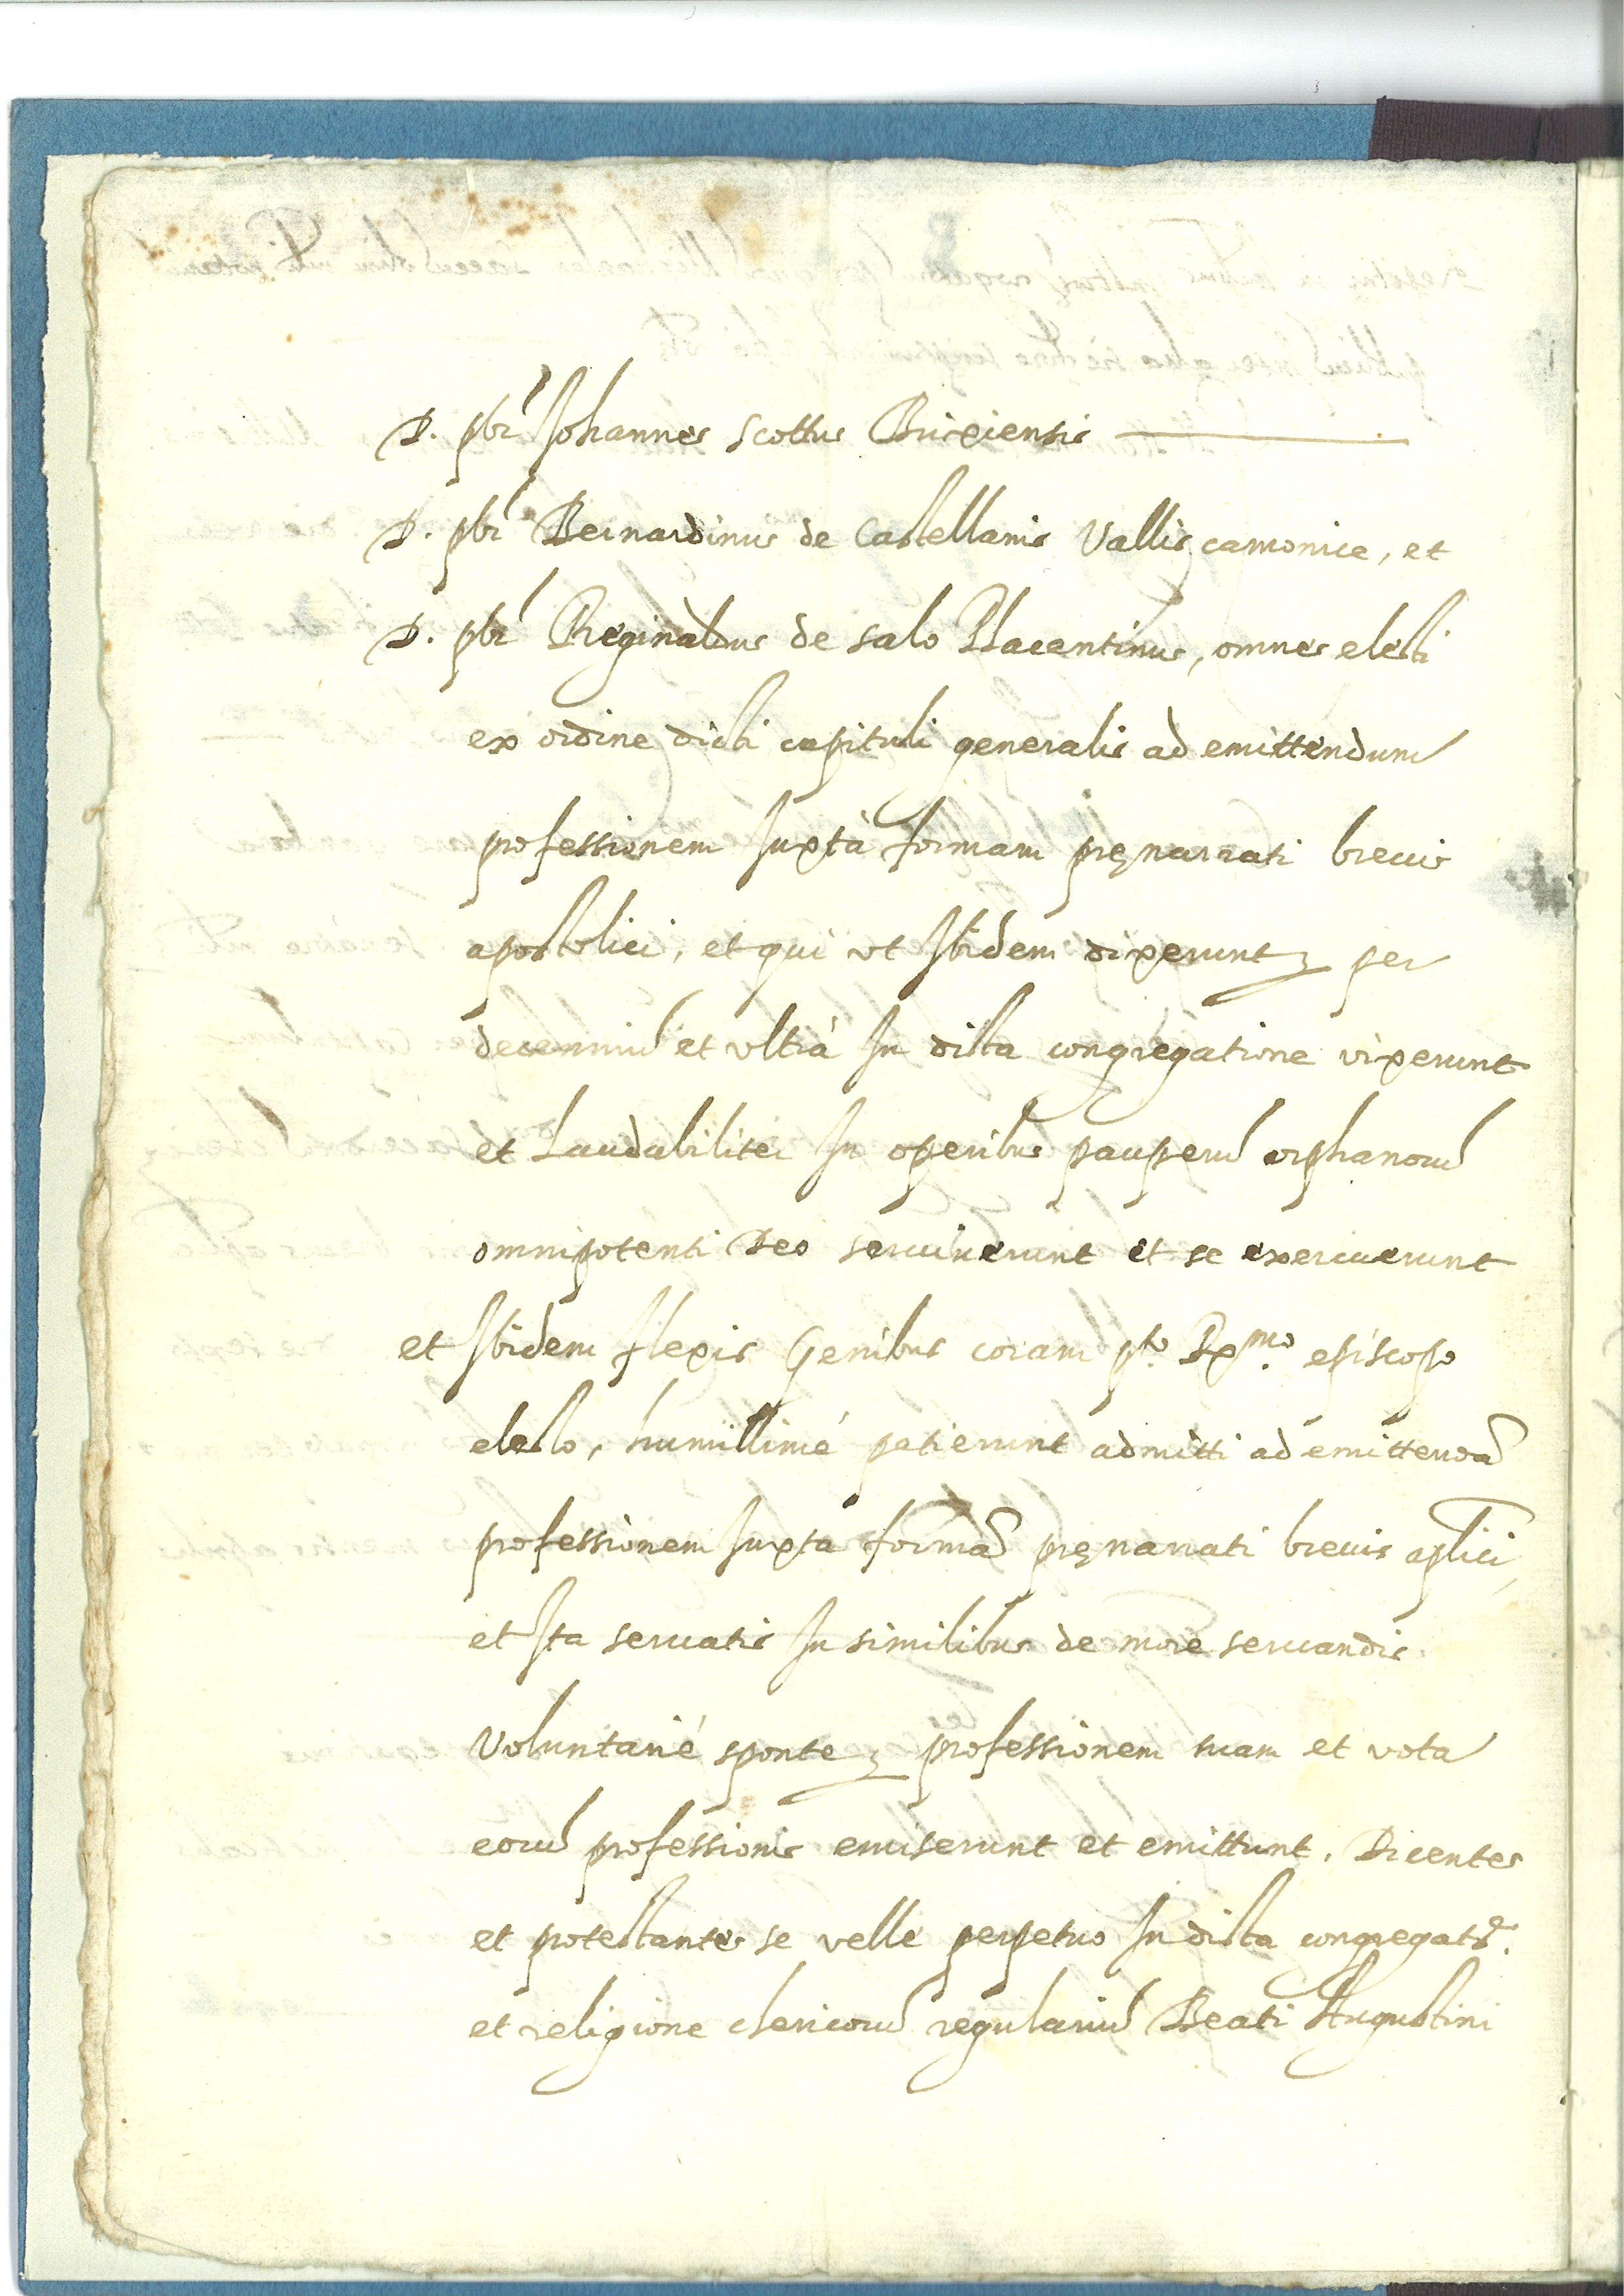 D. pbr Johannes scottus Brixiensis
D. pbr Bernardinus de Castellanis Vallis camonice, et
D. pbr Reginaldus de salo Placentinus, omnes electi
ex ordine dicti capituli generalis ad emittendum
professionem Juxtà formam pręnarrati breuis
apostolici, et qui vt Ibidem dixerunt per
decenniũ et vltrà In dicta congregatione vixerunt
et Laudabiliter In operibus pauperũ orphanorũ
omnipotenti Deo seruiuerunt et se exercuerunt
et Ibidem flexis Genibus coram pto. Rxmo. episcopo
electo, humillimé petierunt admitti ad emittendã
professionem Juxta formã pręnarrati breuis aplici,
et Ita seruatis In similibus de more seruandis
Voluntarié sponte professionem suam et vota
eorũ professionis emiserunt et emittunt. Dicentes
et protestantes se velle perpetuo In dicta congregate.
et religione clericorũ regulariũ Beati Augustini